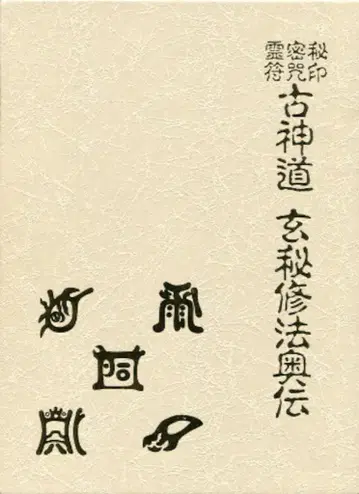 秘印
密咒
霊符
古神道 玄秘修法奥伝